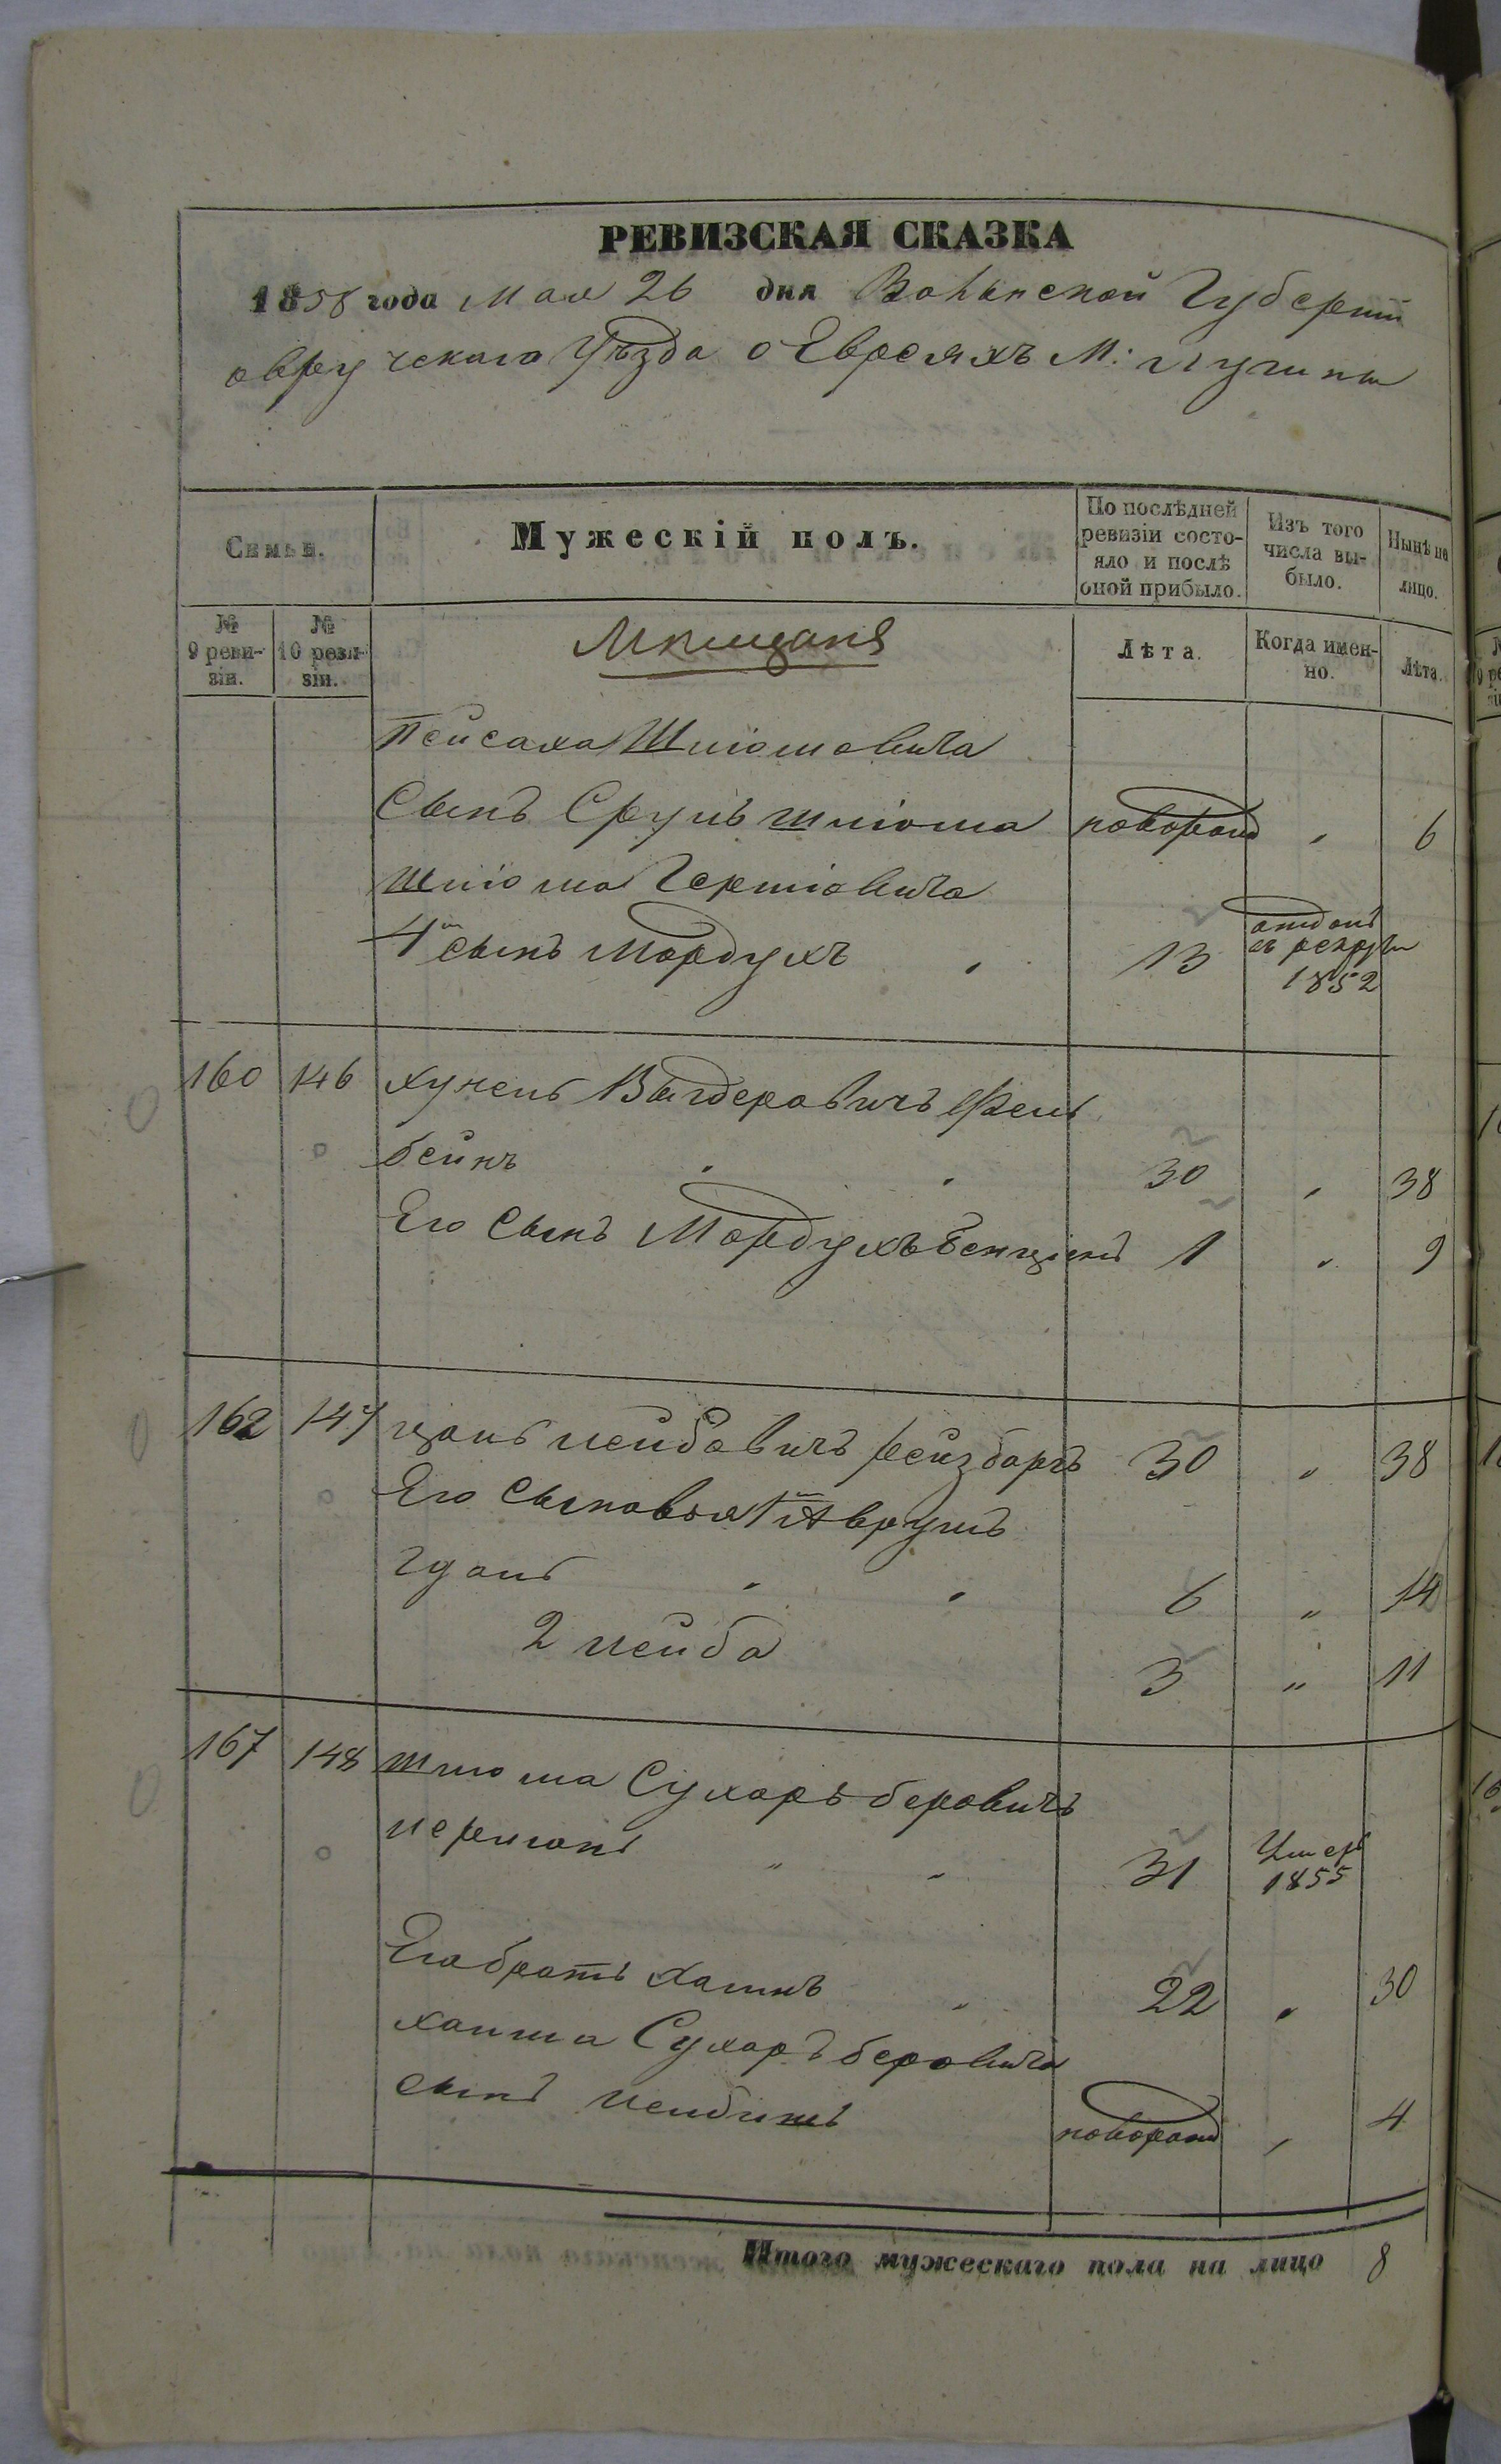 РЕВИЗСКАЯ СКАЗКА
1858 года Мая 26 дня Волынской Губерніи
Овручскаго Уѣзда о Евреяхъ М: Лугины
Семьи.
Мужескій полъ.
По послѣдней ревизіи состояло и послѣ оной прибыло.
Изъ того числа выбыло.
Нынѣ на лицо.
№ 9 ревизіи.
№ 10 ревизіи.
Мѣщане
Лѣта.
Когда именно.
Лѣта.
Пейсаха Шліомовича
Сынъ Сруль Шліома новорожд " 6
Шліома Гершковича
4й сынъ Мордухъ " 13 отданъ въ рекруты 1852
160 146 Хунель Вигдеровичъ Фель
бейнъ " " 30 " 38
Его Сынъ Мордухъ Бенціонъ 1 " 9
162 147 Цаль Лейбовичъ Рейзбаргъ 30 " 38
Его Сыновья 1й Аврумъ
Гдаль " " 6 " 14
2 Лейба 3 " 11
167 148 Шлиома Сухаръ Беровичъ
Лерманъ " " 31 Умеръ 1855
Его братъ Хаимъ " 22 " 30
Хаима Сухаръ Беровича
сынъ Лейбишъ новорожд " 4
Итого мужескаго пола на лицо 8